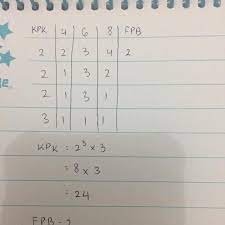 KPK 4 6 8 FPB
2 2 3 4 2
2 1 3 2
2 1 3 1
3 1 1 1
KPK = 2³ × 3
= 8 × 3
= 24
FPB = 2